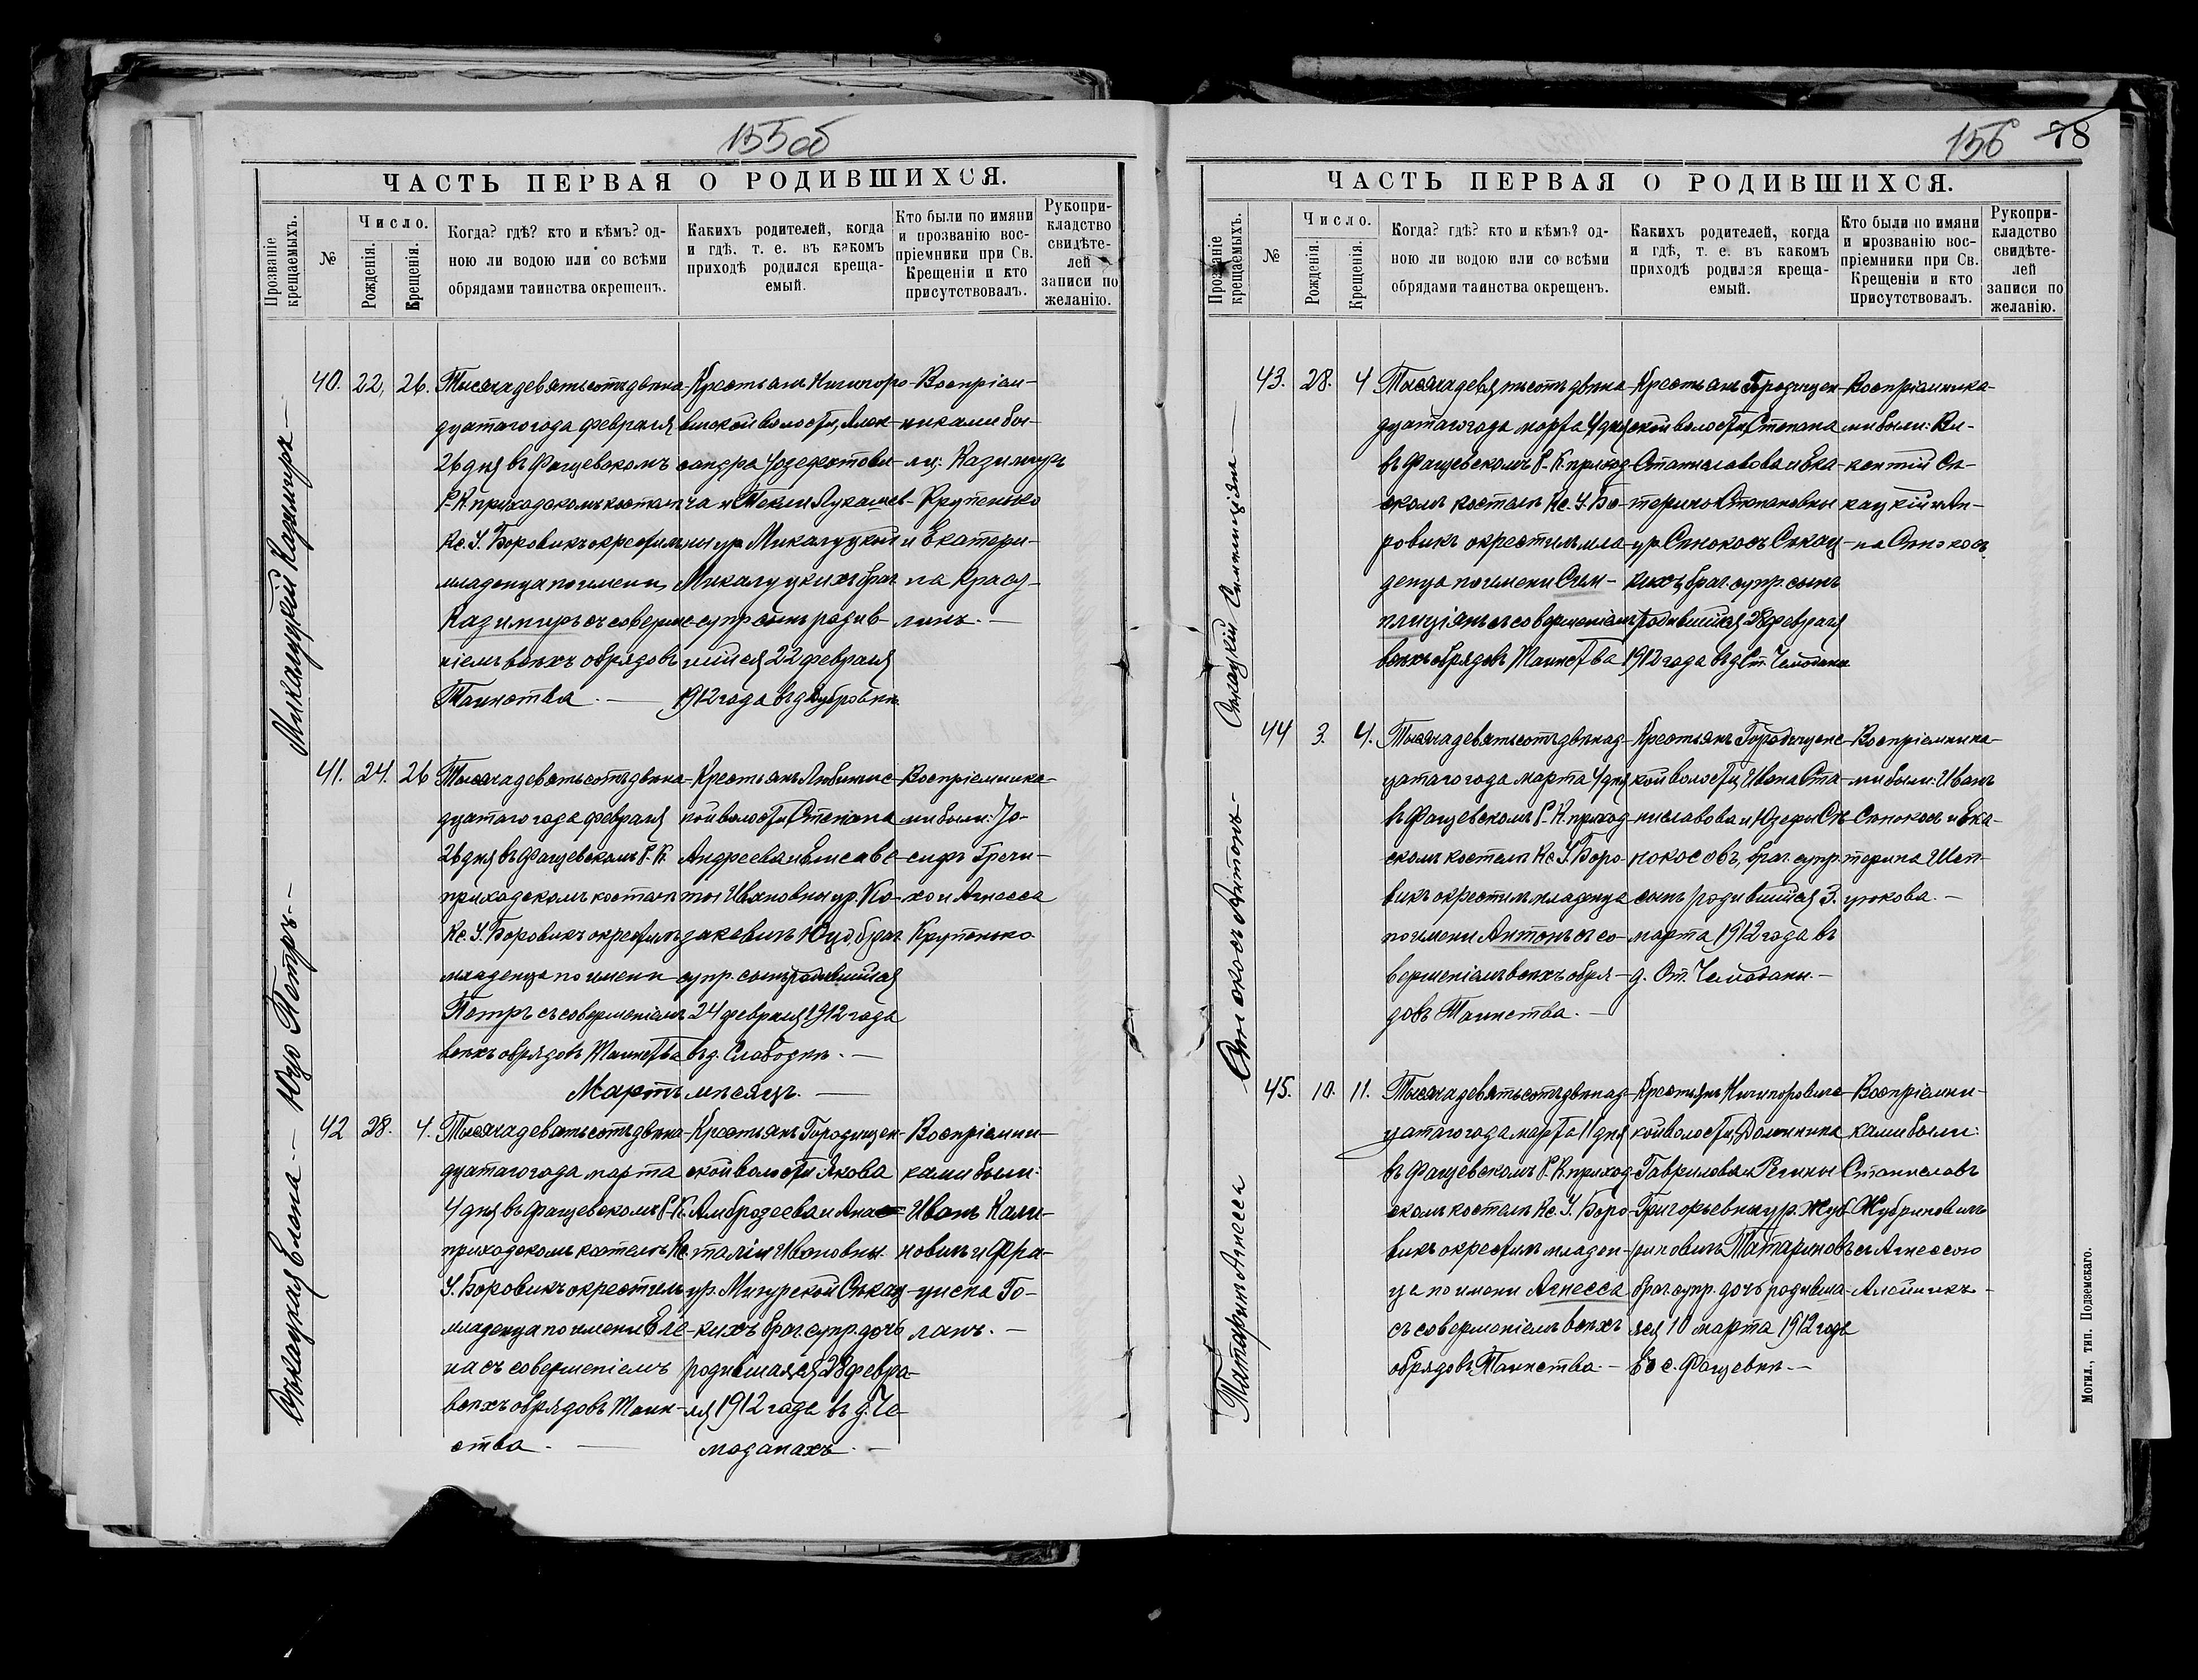 155 об
ЧАСТЬ ПЕРВАЯ О РОДИВШИХСЯ.
Прозваніе крещаемыхъ.
№
Число.
Рожденія.
Крещенія.
Когда? гдѣ? кто и кѣмъ? од-
ною ли водою или со всѣми
обрядами таинства окрещенъ.
Какихъ родителей, когда
и гдѣ, т. е. въ какомъ
приходѣ родился креща-
емый.
Кто были по имяни
и прозванію вос-
пріемники при Св.
Крещеніи и кто
присутствовалъ.
Рукопри-
кладство
свидѣте-
лей
записи по
желанію.
Микалуцкій Казимиръ
40. 22, 26.
Тысяча девятьсотъ двѣна-
дцатаго года февраля
26 дня въ Фащевскомъ
Р.-К. приходскомъ костелѣ
Кс. І. Боровикъ окрестилъ
младенца по имени
Казимиръ съ соверше-
ніемъ всѣхъ обрядовъ
Таинства. —
Крестьянъ Ничипоро-
вичской волости, Алек-
сандра Іозефатови-
ча и Теклии Лукашев-
ны ур. Микалуцкой
Микалуцкихъ брач.
супр. сынъ родив-
шійся 22 февраля
1912 года въ д. Дубровкѣ
Воспріем-
никами бы-
ли: Казимиръ
Крупенько
и Екатери-
на
—
Юцо Петръ. —
41. 24. 26
Тысяча девятьсотъ двѣна-
дцатаго года февраля
26 дня въ Фащевскомъ Р. К.
приходскомъ костелѣ
Кс. І. Боровикъ окрестилъ
младенца по имени
Петръ съ совершеніемъ
всѣхъ обрядовъ Таинства
Крестьянъ
кой волости Степана
Андреева и Елисаве-
ты Ивановны ур. Ко-
закевичъ Юцо, брач.
супр. сынъ родившійся
24 февраля 1912 года
въ д. Слободкѣ. —
Воспріемника-
ми были: Іо-
сифъ Гречи-
хо и Агнесса
Крупенько
Мартъ мѣсяцъ. —
Сѣкацкая Елена —
42 28. 4.
Тысяча девятьсотъ двѣна-
дцатаго года марта
4 дня въ Фащевскомъ Р-К.
приходскомъ костелѣ Кс.
І. Боровикъ окрестилъ
младенца по имени Еле-
на съ совершеніемъ
всѣхъ обрядовъ Таин-
ства. —
Крестьянъ Городищен-
ской волости Якова
Амброзеева и Анас-
таліи Ивановны
ур. Мигурской Сѣкац-
кихъ брач. супр. дочь
родившаяся 28 февра-
ля 1912 года въ д. Че-
моданахъ. —
Воспріемни-
ками были:
Иванъ Кали-
новичъ и Фра-
нциска Го-
ланъ. —
156 78
ЧАСТЬ ПЕРВАЯ О РОДИВШИХСЯ.
Прозваніе крещаемыхъ.
№
Число.
Рожденія.
Крещенія.
Когда? гдѣ? кто и кѣмъ? од-
ною ли водою или со всѣми
обрядами таинства окрещенъ.
Какихъ родителей, когда
и гдѣ, т. е. въ какомъ
приходѣ родился креща-
емый.
Кто были по имяни
и прозванію вос-
пріемники при Св.
Крещеніи и кто
присутствовалъ.
Рукопри-
кладство
свидѣте-
лей
записи по
желанію.
Сѣкацкій Симплиціянъ —
43. 28. 4
Тысяча девятьсотъ двѣна-
дцатаго года марта 4 дня
въ Фащевскомъ Р.-К. приход-
скомъ костелѣ Кс. І. Бо-
ровикъ окрестилъ мла-
денца по имени Сим-
плиціянъ съ совершеніемъ
всѣхъ обрядовъ Таинства
Крестьянъ Городищен-
ской волости, Степана
Станиславова и Ека-
терины Степановны
ур. Сѣнокосъ Сѣкац-
кихъ, брач. супр. сынъ
родившійся 28 февраля
1912 года въ д. Ст. Чемоданы
Воспріемника-
ми были: Ви-
кентій Сѣ-
кацкій и Ан-
на Сѣнокосъ
Сѣнокосъ Антонъ —
44 3. 4.
Тысяча девятьсотъ двѣнад-
цатаго года марта 4 дня
въ Фащевскомъ Р.-К. приход-
скомъ костелѣ Кс. І. Боро-
викъ окрестилъ младенца
по имени Антонъ съ со-
вершеніемъ всѣхъ обря-
довъ Таинства. —
Крестьянъ Городищенс-
кой волости, Ивана Ста-
ниславова и Юзефы Сѣ-
нокосовъ, брач. супр.
сынъ родившійся 3.
марта 1912 года въ
д. Ст. Чемоданы. —
Воспріемника-
ми были: Иванъ
Сѣнокосъ и Ека-
терина Шен-
цюкова. —
Татаринъ Агнесса
45. 10. 11.
Тысяча девятьсотъ двѣнад-
цатаго года марта 11 дня
въ Фащевскомъ Р. К. приход-
скомъ костелѣ Кс. І. Боро-
викъ окрестилъ младен-
ца по имени Агнесса
съ совершеніемъ всѣхъ
обрядовъ Таинства. —
Крестьянъ Ничипоровичс-
кой волости, Доминика
Гаврилова и Регины
Григорьевны ур. Жуб-
риновичъ Татариновъ
брач. супр. дочь родивша-
яся 10 марта 1912 года
въ с. Фащевкѣ. —
Воспріемни-
ками были:
Станиславъ
Жубриновичъ
съ Агнессою
Алейникъ —
Могил., тип. Подземскаго.